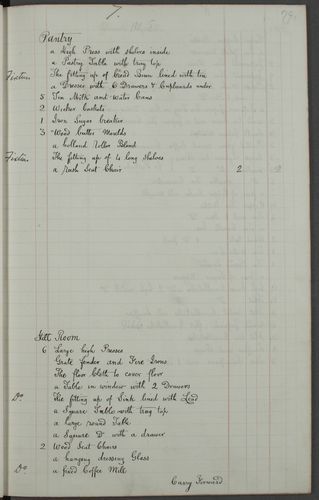 7.
79.
Pantry
a High Press with shelves inside
a Pastry Table with tray top
Fixture The fitting up of Bread Bunn lined with tin
a Dresser with 6 Drawers & Cupboards under
5 Tin Milk and water Cans
2 Wicker baskets
1 Iron Sugar breaker
3 Wood butter Moulds
a holland Roller Blind
Fixture The fitting up of 4 long shelves
a Rush Seat Chair 2
Still Room
6 Large high Presses
Grate fender and Fire Irons
The floor Cloth to cover floor
a Table in window with 2 Drawers
Do The fitting up of Sink lined with Lead
a Square Table with tray top
a large round Table
a Square Do with a drawer
2 Wood Seat Chairs
a hanging dressing Glass
Do a fixed Coffee Mill
Carry Forward